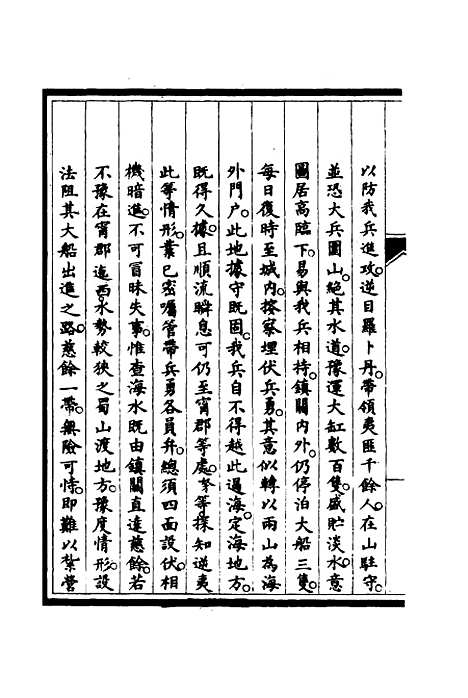 以防我兵進攻。逆目羅卜丹。帶領夷匪千餘人。在山駐守。
並恐大兵圍山。絕其水道。豫運大缸數百隻。盛貯淡水。意
圖居高臨下。易與我兵相持。鎮關內外。仍停泊大船三隻。
每日復時至城內。按察埋伏兵勇。其意似轉以兩山為海
外門戶。此地據守旣固。我兵自不得越此過海。定海地方。
旣得久據。且順流瞬息可仍至甯郡等處。夯等探知逆夷
此等情形。業已密囑管帶兵勇各員弁。總須四面設伏。相
機暗進。不可冒昧失事。惟查海水旣由鎮關直達慈餘。若
不豫在甯郡迤西。水勢較狹之蜀山渡地方。豫度情形。設
法阻其大船出進之路。慈餘一帶。無險可恃。即難以紮營